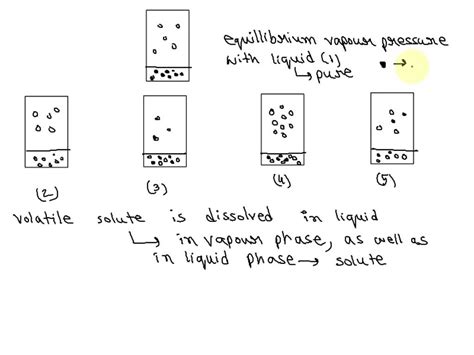 equillibrium vapour pressure
with liquid (1)
↳ pure
(2) (3) (4) (5)
volatile solute is dissolved in liquid
↳ in vapour phase, as well as
in liquid phase → solute